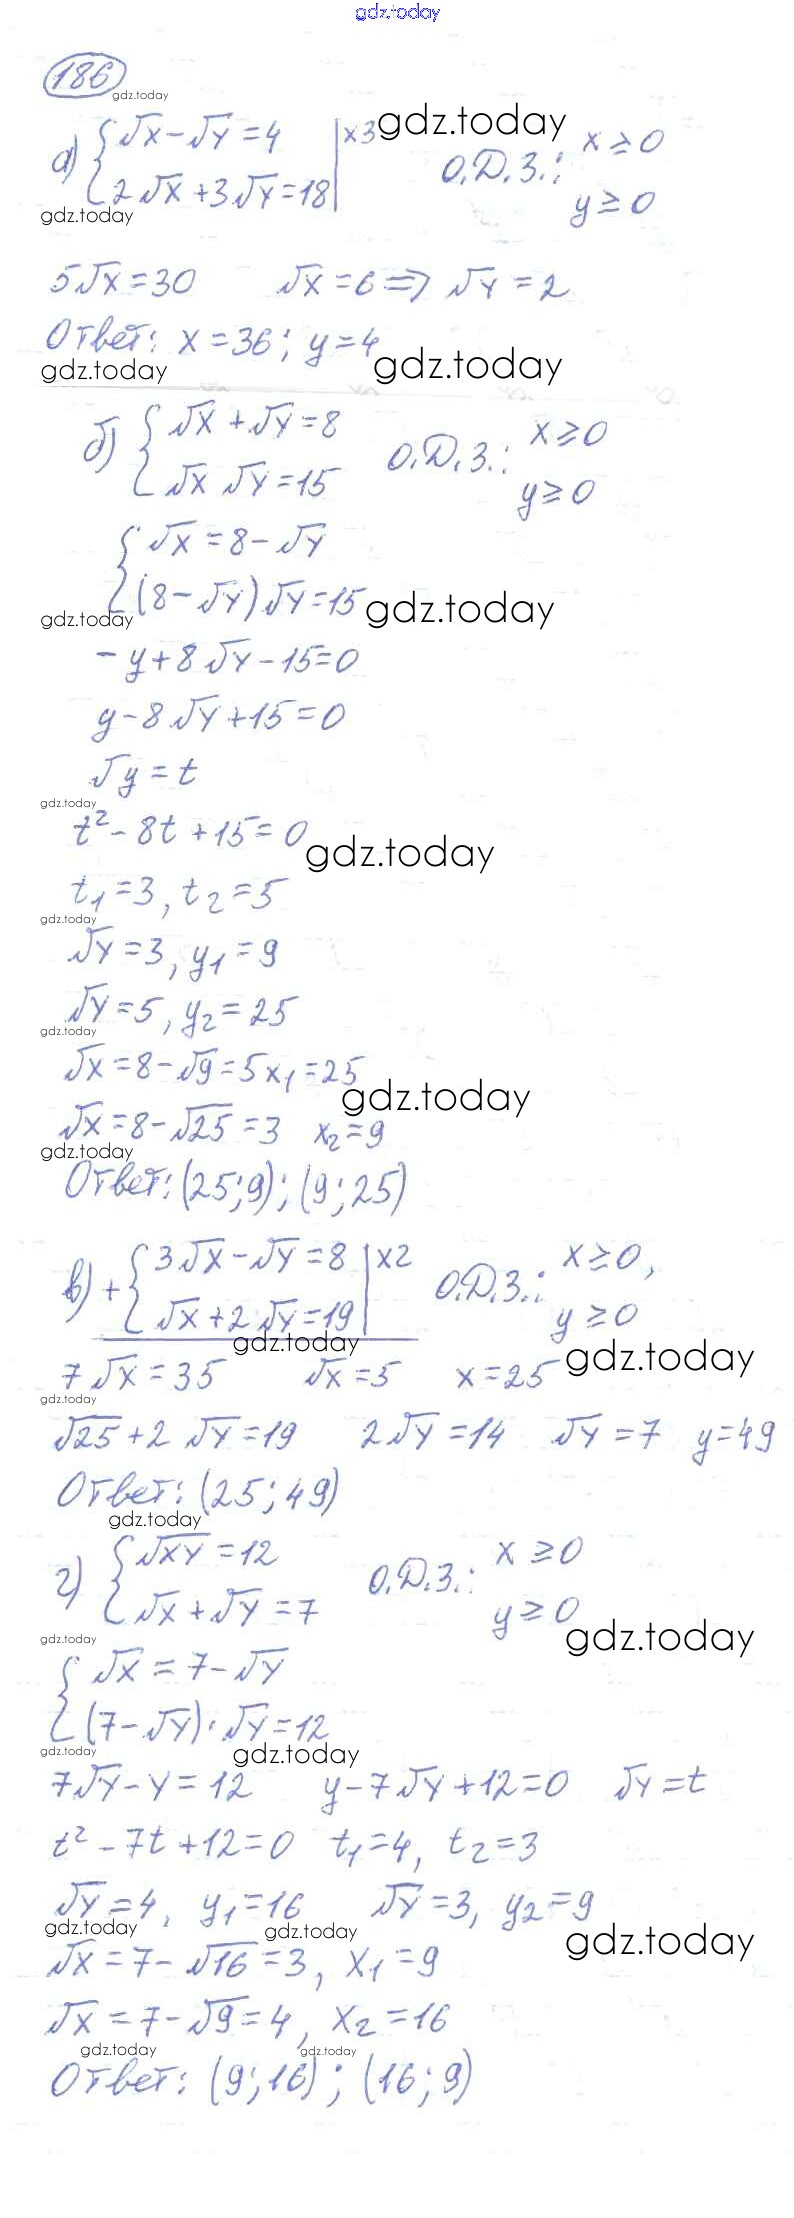 gdz.today
186
gdz.today
а) {√x − √y = 4 | ×3 gdz.today О.Д.З.: x ≥ 0
2√x + 3√y = 18 y ≥ 0
gdz.today
5√x = 30 √x = 6 ⇒ √y = 2
Ответ: x = 36; y = 4
gdz.today gdz.today
б) {√x + √y = 8 О.Д.З.: x ≥ 0
√x √y = 15 y ≥ 0
{√x = 8 − √y
(8 − √y)√y = 15 gdz.today
gdz.today
−y + 8√y − 15 = 0
y − 8√y + 15 = 0
√y = t
gdz.today
t² − 8t + 15 = 0 gdz.today
t₁ = 3, t₂ = 5
gdz.today
√y = 3, y₁ = 9
√y = 5, y₂ = 25
gdz.today
√x = 8 − √9 = 5 x₁ = 25
gdz.today
√x = 8 − √25 = 3 x₂ = 9
gdz.today
Ответ: (25; 9); (9; 25)
в) + {3√x − √y = 8 | ×2 О.Д.З.: x ≥ 0,
√x + 2√y = 19 y ≥ 0
gdz.today gdz.today
7√x = 35 √x = 5 x = 25
gdz.today
√25 + 2√y = 19 2√y = 14 √y = 7 y = 49
Ответ: (25; 49)
gdz.today
г) {√xy = 12 О.Д.З.: x ≥ 0
√x + √y = 7 y ≥ 0
gdz.today gdz.today
{√x = 7 − √y
(7 − √y) · √y = 12
gdz.today gdz.today
7√y − y = 12 y − 7√y + 12 = 0 √y = t
t² − 7t + 12 = 0 t₁ = 4, t₂ = 3
√y = 4, y₁ = 16 √y = 3, y₂ = 9
gdz.today gdz.today gdz.today
√x = 7 − √16 = 3, x₁ = 9
√x = 7 − √9 = 4, x₂ = 16
gdz.today gdz.today
Ответ: (9; 16); (16; 9)